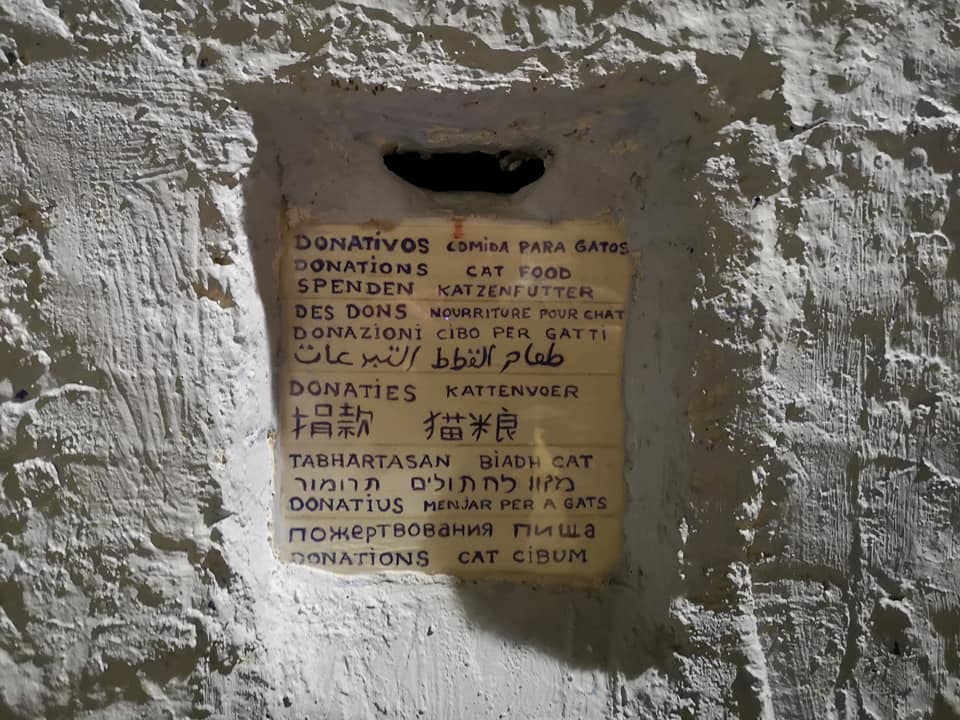 DONATIVOS COMIDA PARA GATOS
DONATIONS CAT FOOD
SPENDEN KATZENFUTTER
DES DONS NOURRITURE POUR CHAT
DONAZIONI CIBO PER GATTI
طعام القطط التبرعات
DONATIES KATTENVOER
捐款 猫粮
TABHARTASAN BIADH CAT
מקוו לחתולים תרומור
DONATIUS MENJAR PER A GATS
пожертвования пища
DONATIONS CAT CIBUM